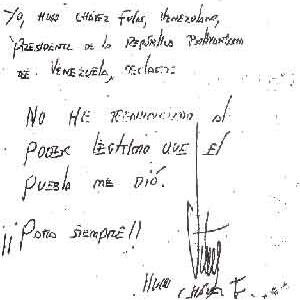 Yo, Hugo Chávez Frías, Venezolano,
Presidente de la República Bolivariana
de Venezuela, declaro:
No he renunciado al
poder legítimo que el
pueblo me dió.
¡¡Para siempre!!
Hugo
Chávez F.